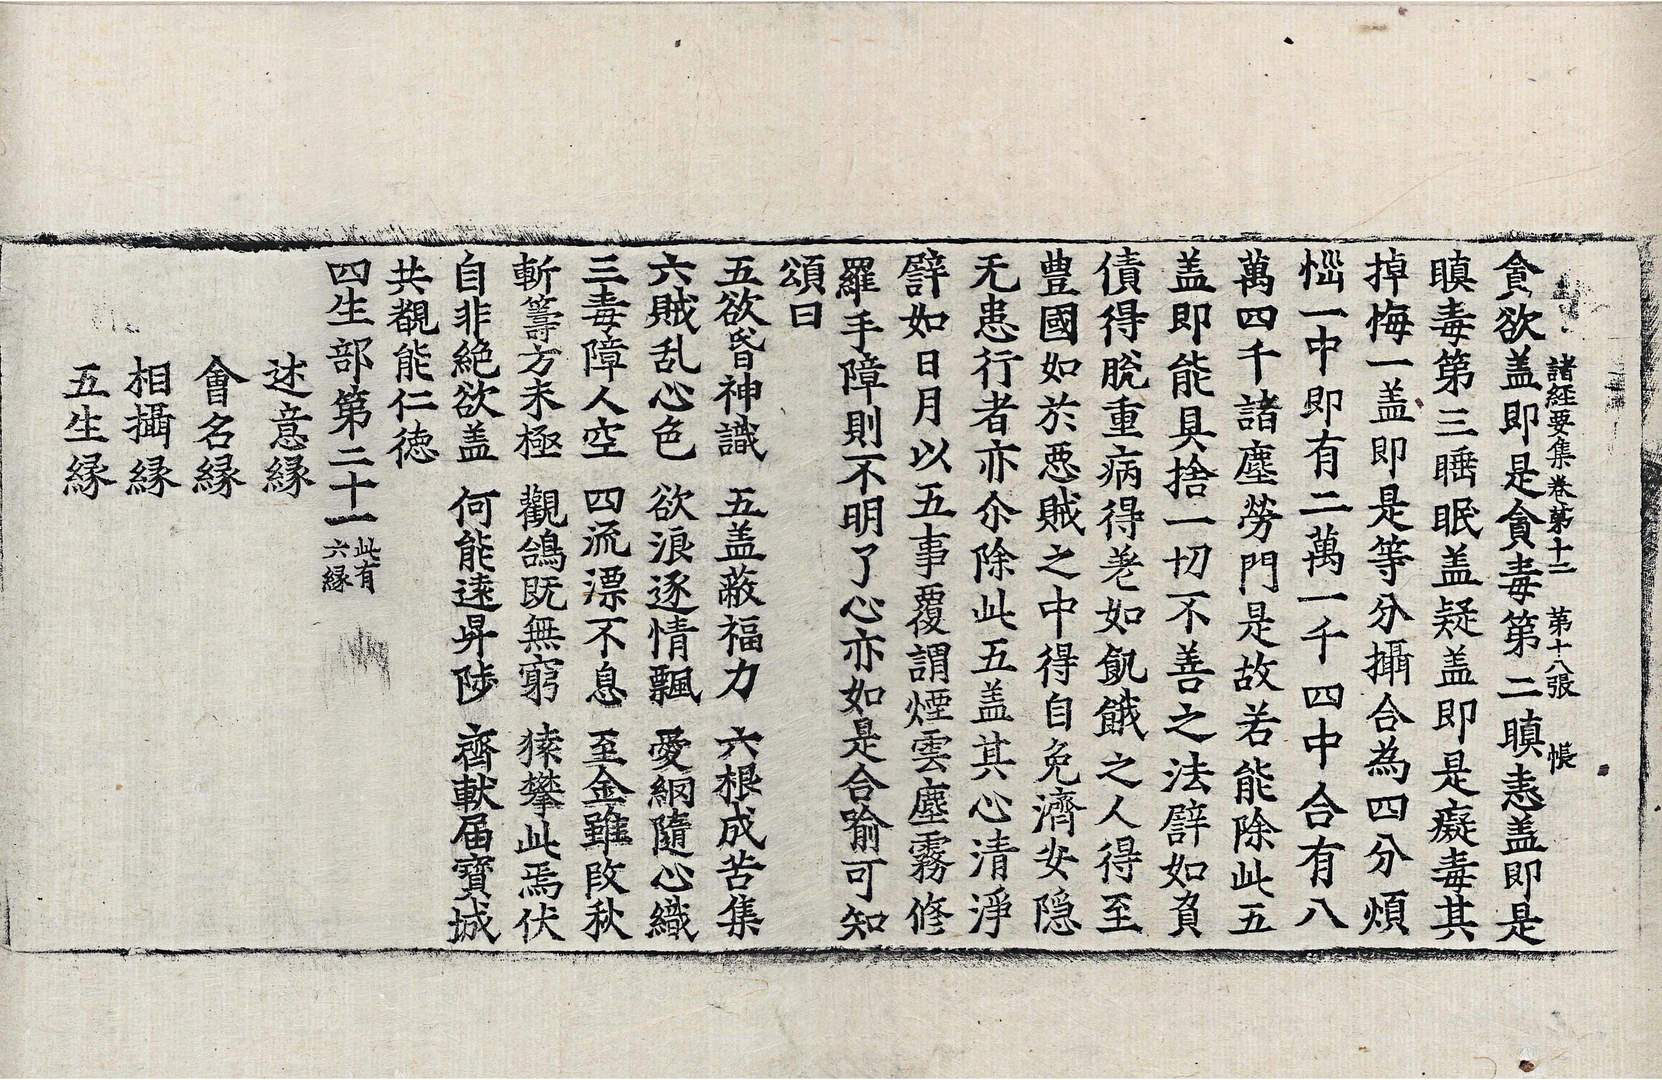 諸経要集卷第十二　第十八張　帳
貪欲盖即是貪毒第二瞋恚盖即是
瞋毒第三睡眠盖疑盖即是癡毒其
掉悔一盖即是等分攝合為四分煩
惱一中即有二萬一千四中合有八
萬四千諸塵勞門是故若能除此五
盖即能具捨一切不善之法譬如負
債得脫重病得差如飢餓之人得至
豊國如於惡賊之中得自免濟安隠
无患行者亦尒除此五盖其心清淨
譬如日月以五事覆謂煙雲塵霧修
羅手障則不明了心亦如是合喻可知
頌曰
五欲昏神識　五盖蔽福力　六根成苦集
六賊乱心色　欲浪逐情飄　愛網隨心織
三毒障人空　四流漂不息　至金雖改秋
斬籌方未極　觀鴿既無窮　猿攀此焉伏
自非絶欲盖　何能遠昇陟　齊軑届寶城
共覩能仁徳
四生部第二十一此有六縁
述意縁
會名縁
相攝縁
五生縁